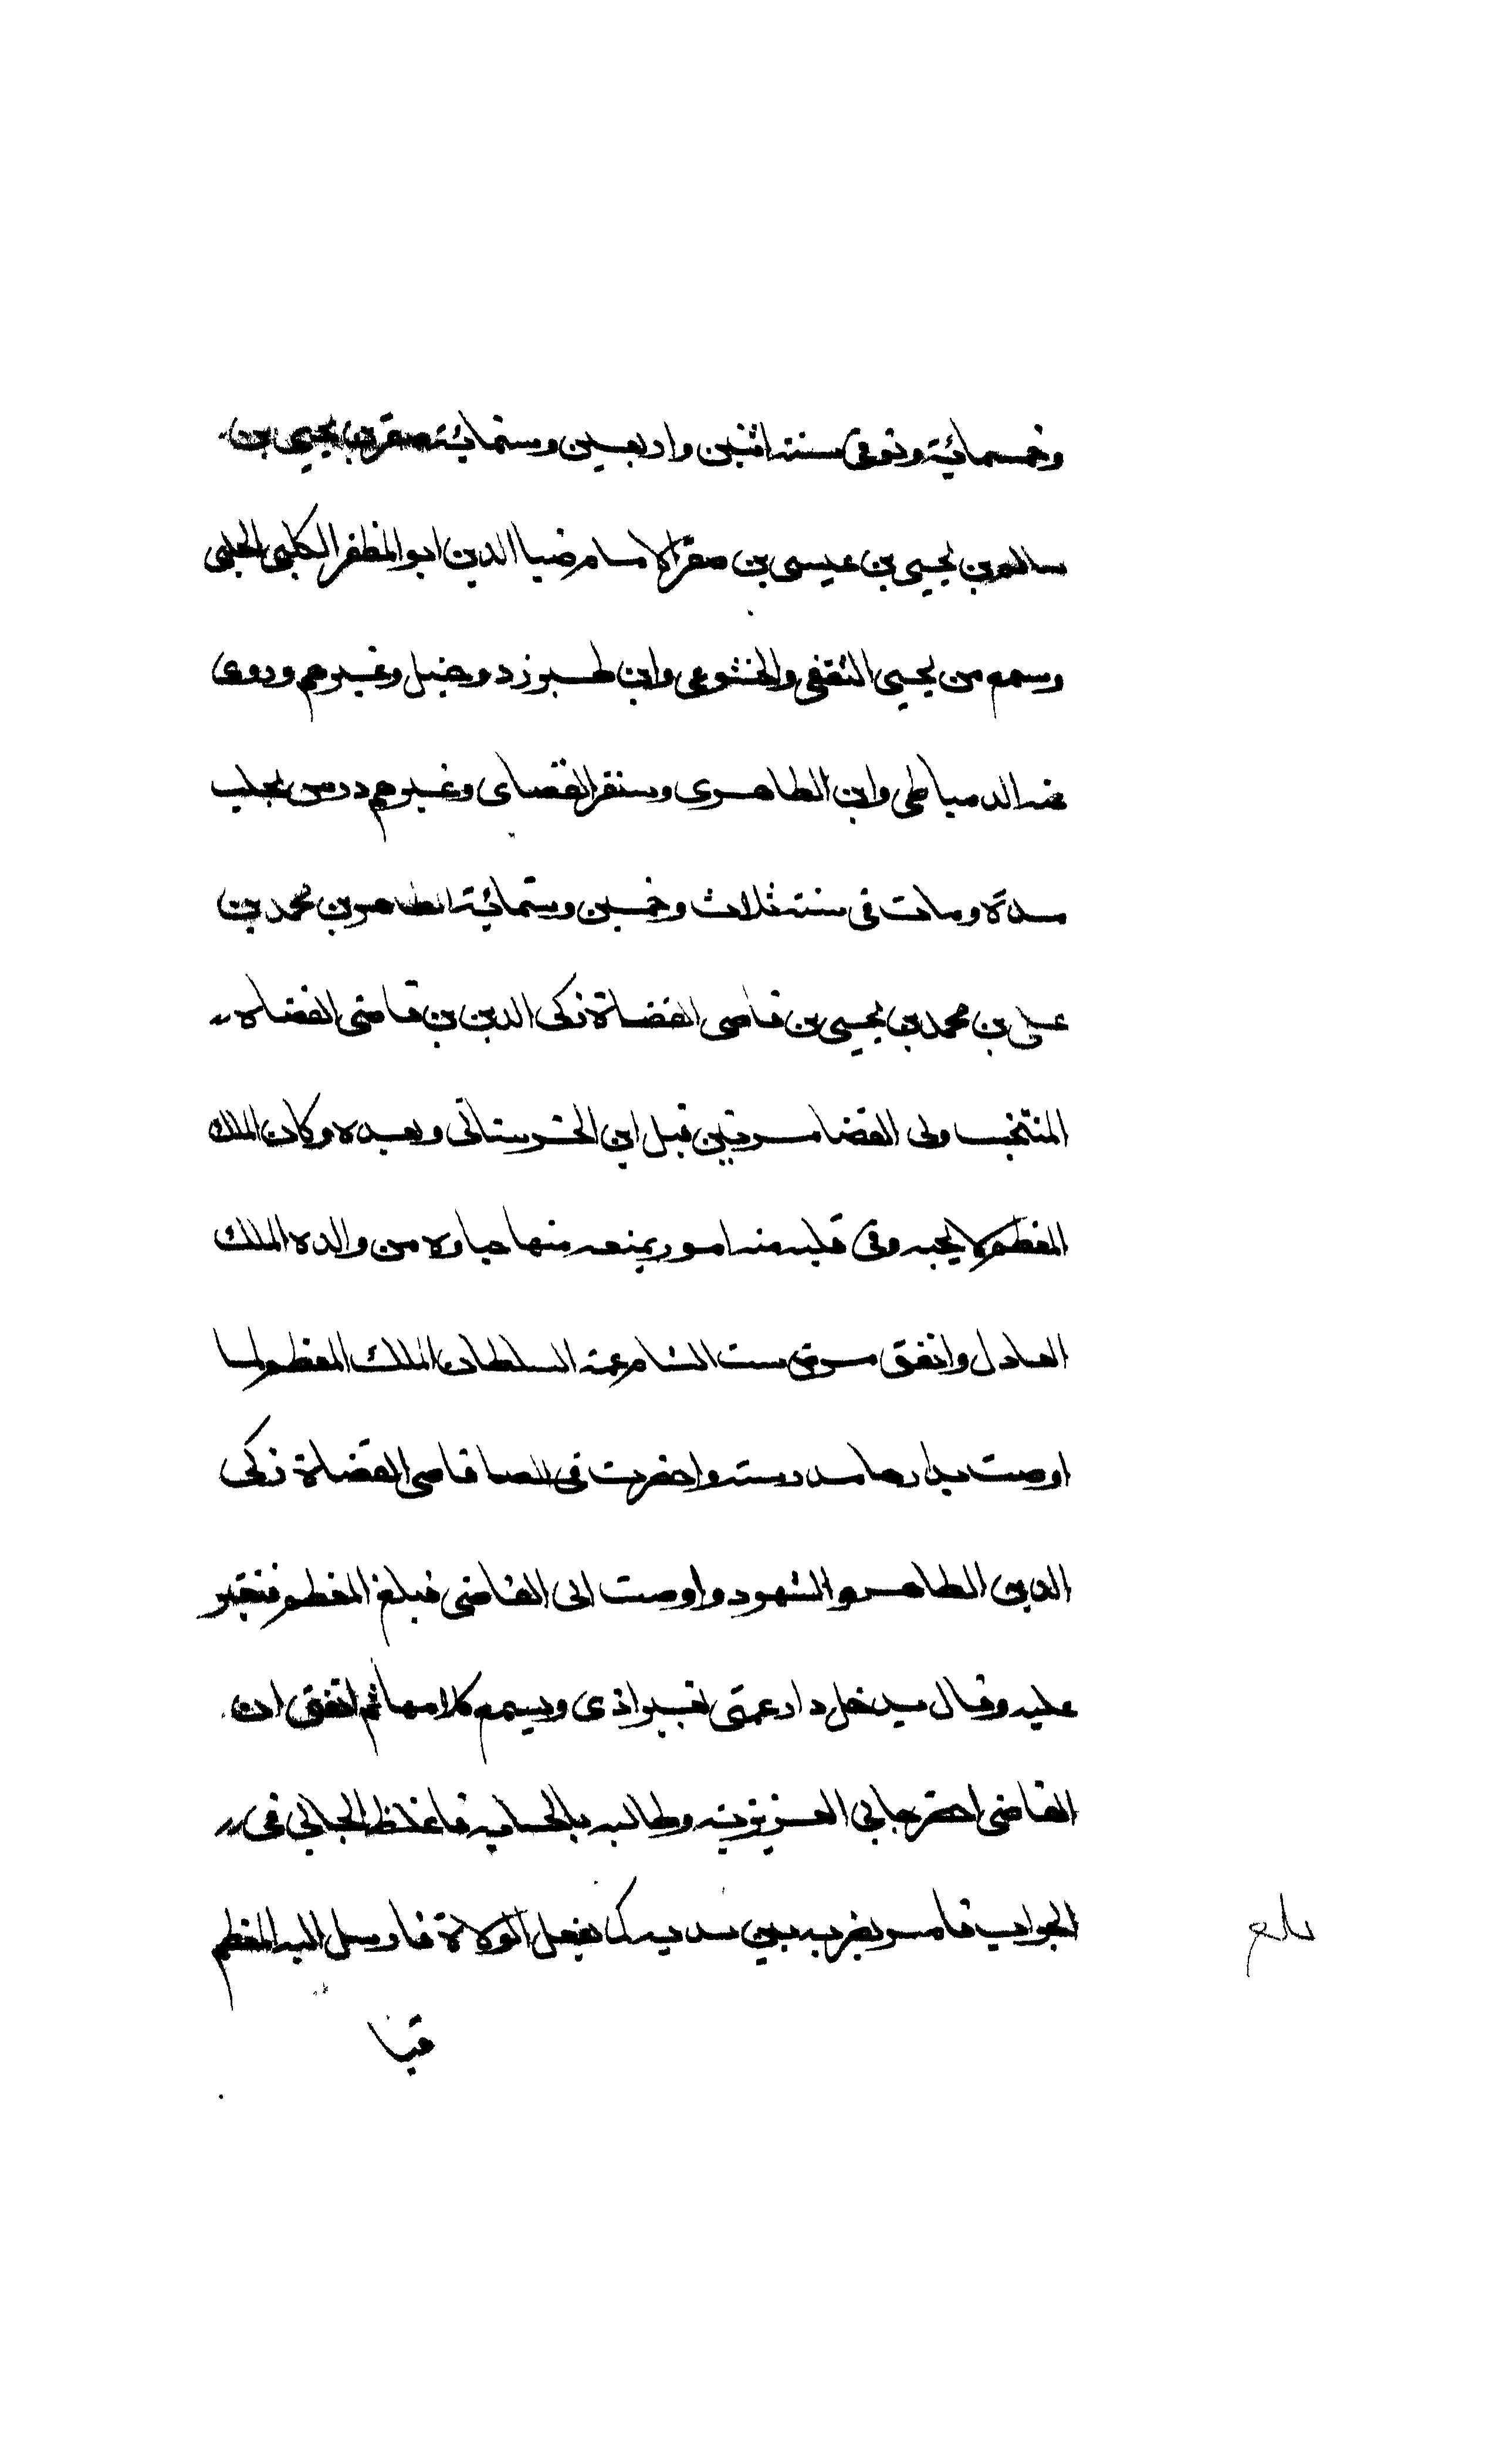 وخمسمائة وتوفى سنة اثنين واربعين وستمائة صقر بن يحيى بن
سالم بن يحيى بن عيسى بن صقر الامام ضيا الدين ابو المظفر الكلبى الحلبى
وسمع من يحيى الثقفى والخشوعى وابن طبرزد وحنبل وغيرهم وروى
عنه الدمياطى وابن الظاهرى وسنقر القضاى وغيرهم درس بحلب
مدة ومات فى سنة ثلاث وخمسين وستمائة الطاهر بن محمد بن
على بن محمد بن يحيى بن قاضى القضاة زكى الدين بن قاضى القضاه
المنتخب ولى القضا مرتين قبل ابن الخرستانى وبعده وكان الملك
المعظم لا يحبه وفى قلبه منه امور يمنعه منها حياوه من والده الملك
العادل واتفق مرض ست الشام عمة السلطان الملك المعظم لما
اوصت بدارها مدرسة واحضرت قاضى القضاة زكى
الدين الطاهر والشهود واوصت الى القاضى فبلغ المعظم فتغير
عليه وقال يدخل دار عمتى بغير اذنى ويسمع كلامها ثم اتفق ان
القاضى احضر جابى العزيزية وطالبه بالحساب فاغلظ الجابى فى
الجواب فامر بضربه بين يديه كما يفعل الولاة فارسل اليه المعظم
بلغ
قبا